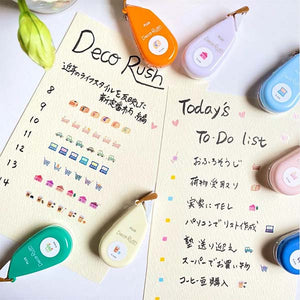 Deco Rush
近年のライフスタイルを反映した
新定番柄 7柄
8
9
10
11
12
13
14
Today's
To-Do list
おふろそうじ
荷物受取り
実家にTEL
パソコンでリスト作成
塾送り迎え
スーパーでお買い物
コーヒー豆購入
Deco Rush
Deco Rush
Deco Rush
Deco Rush